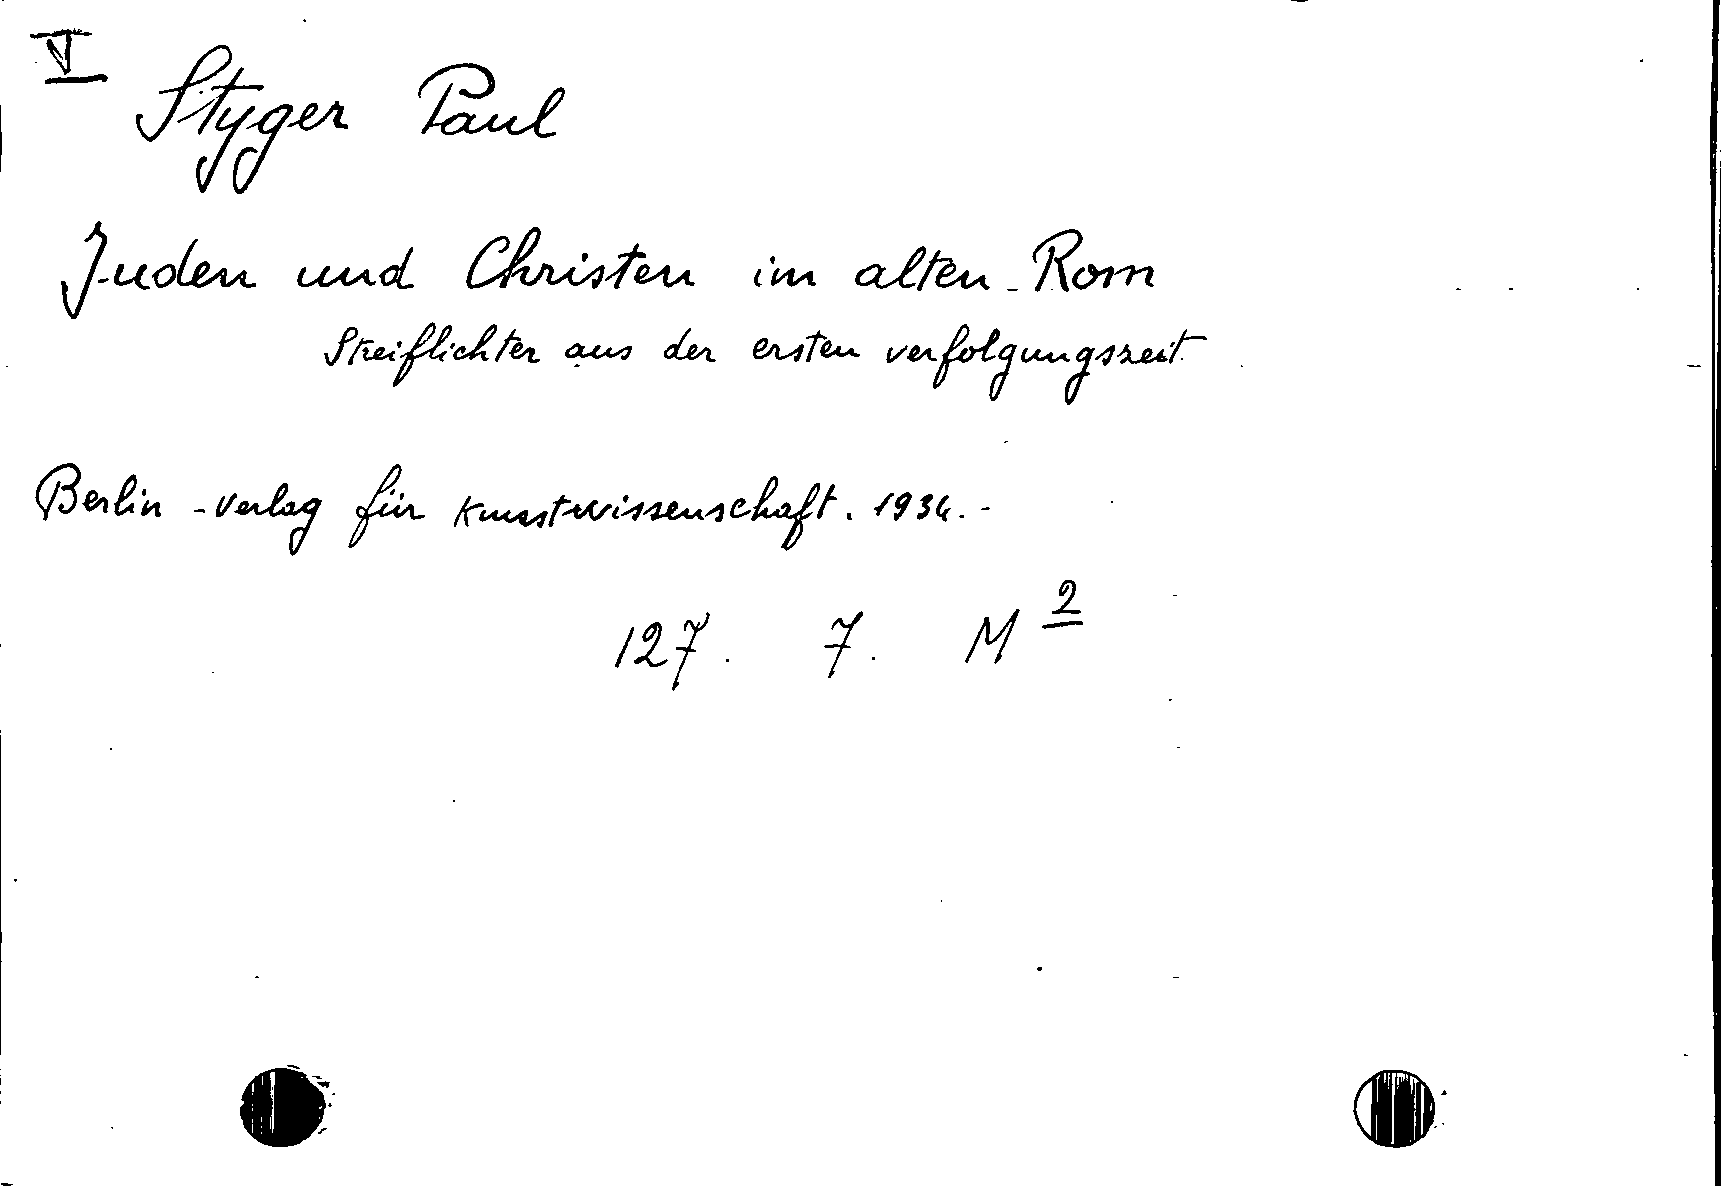 V
Styger Paul
Juden und Christen im alten Rom
Streiflichter aus der ersten verfolgungszeit
Berlin - Verlag für Kunstwissenschaft. 1934. -
127. 7. M 2